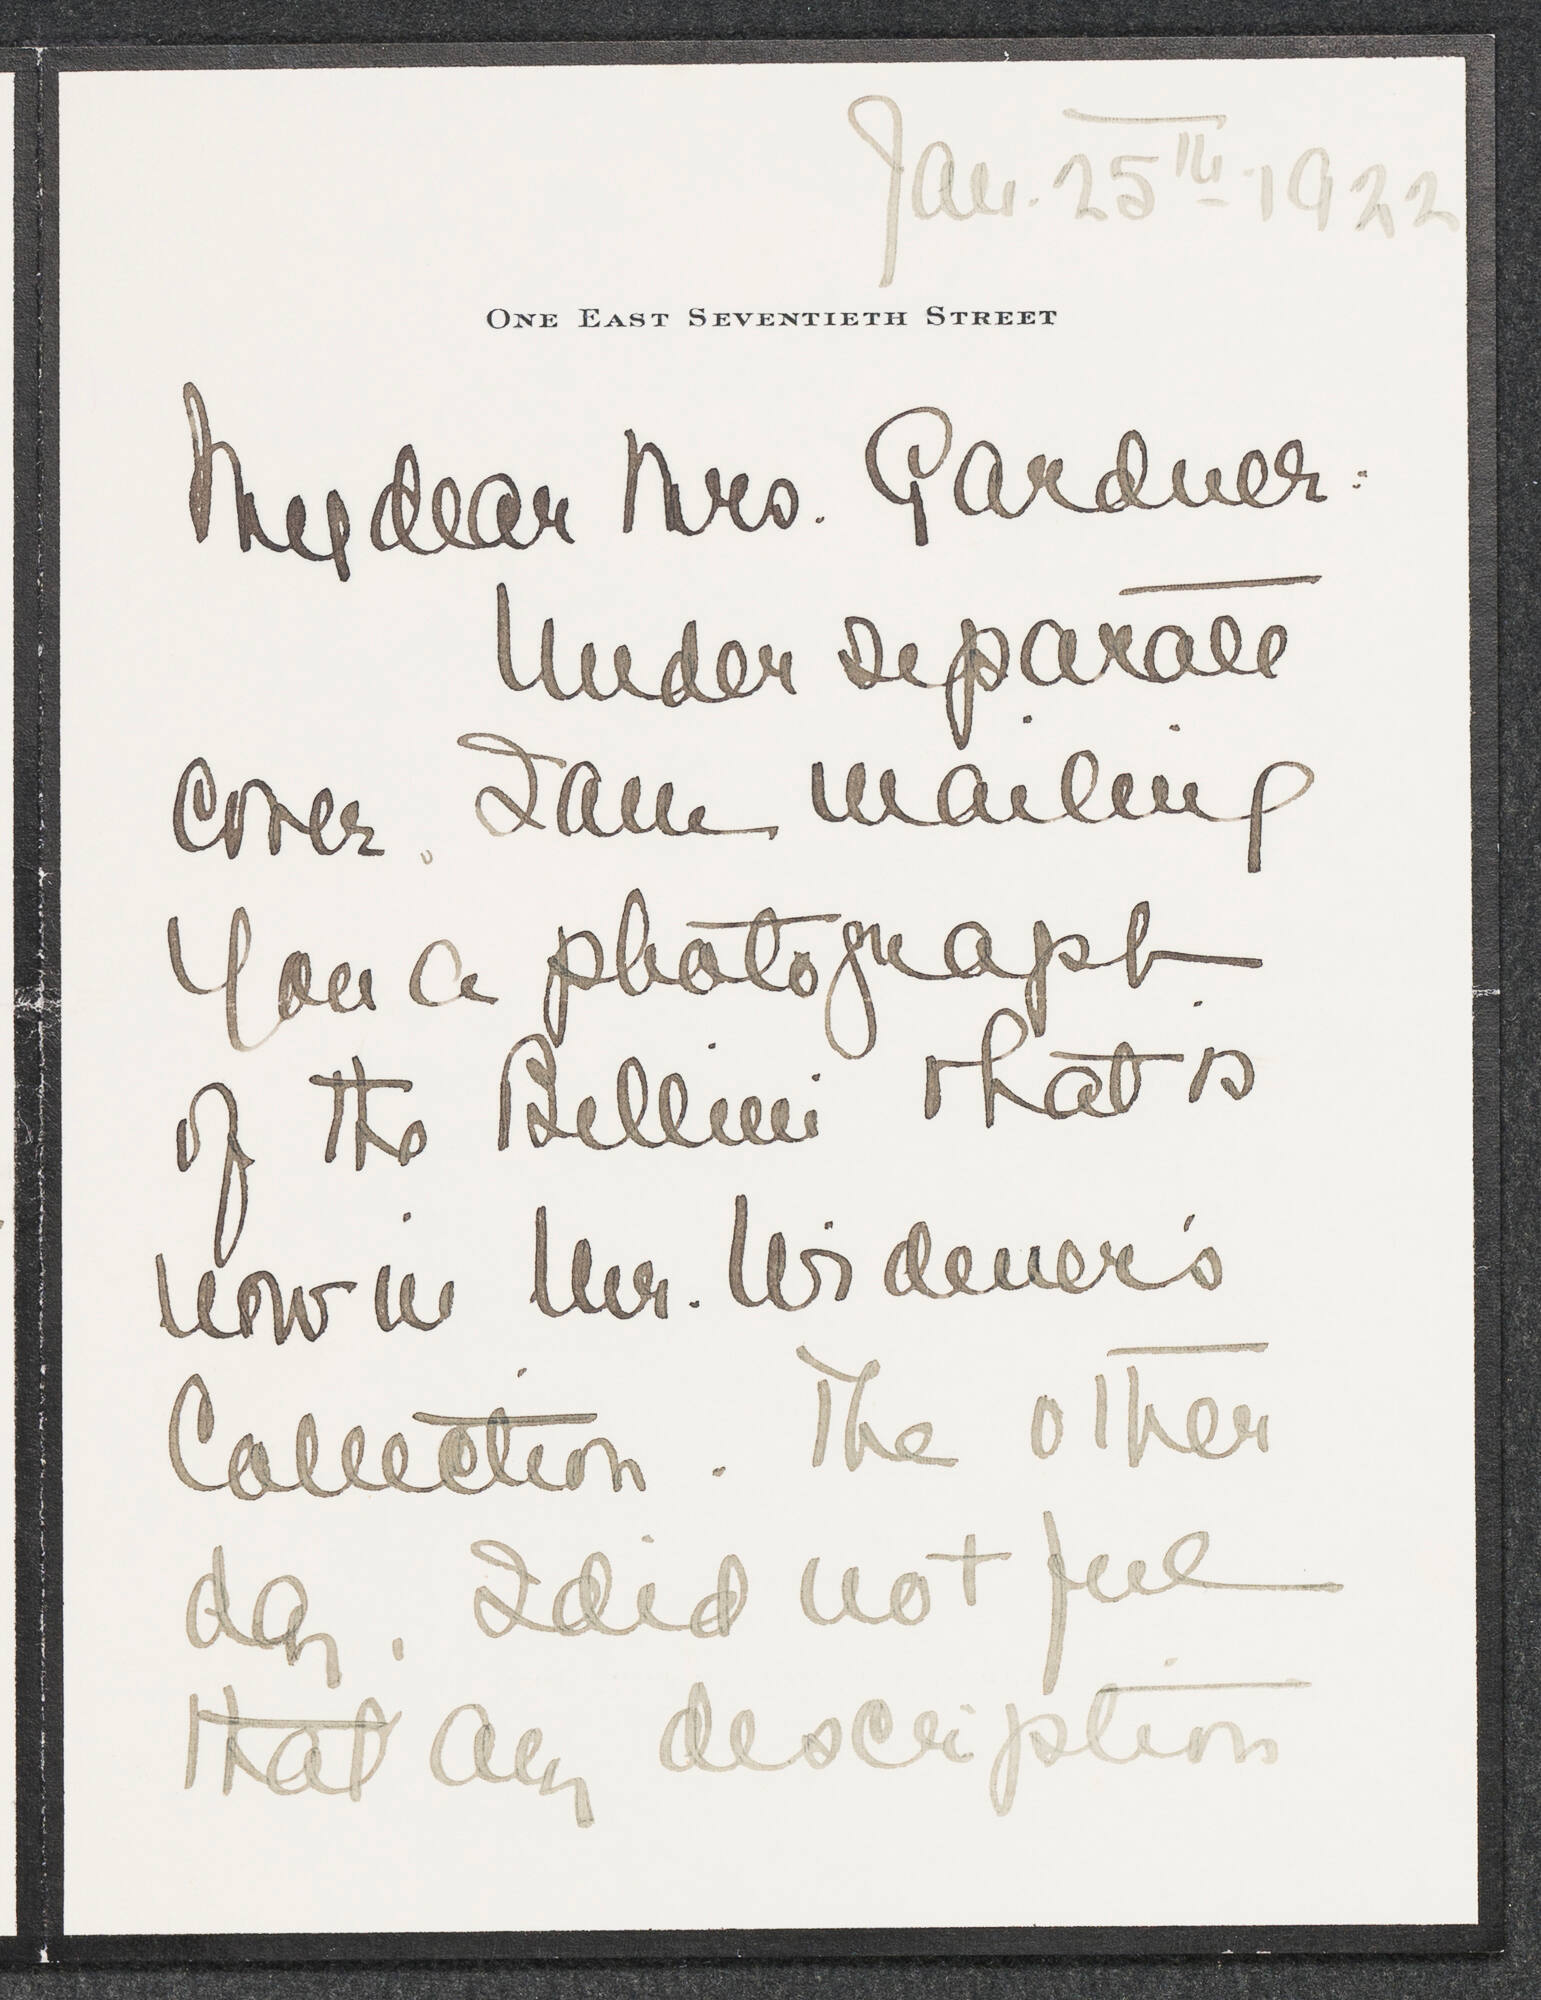 Jan. 25th 1922
ONE EAST SEVENTIETH STREET
My dear Mrs. Gardner:
Under separate
cover. I am mailing
you a photograph
of the Bellini that is
now in Mr. Widener's
Collection. The other
day, I did not feel
that any description